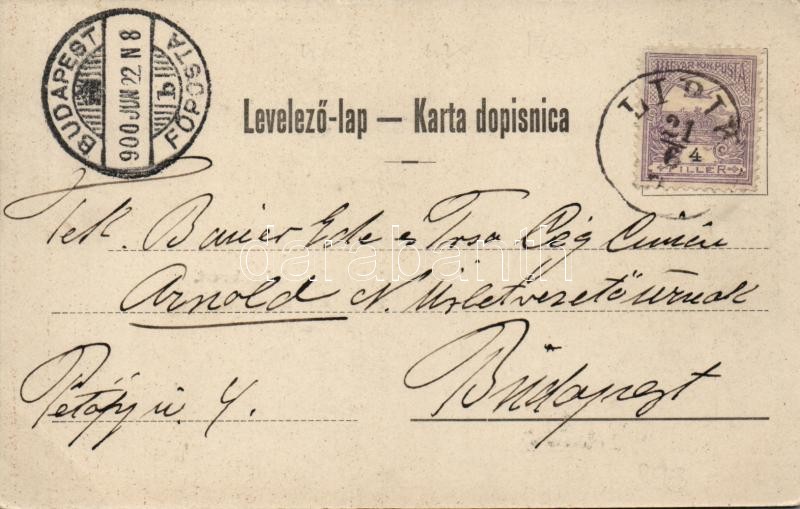 BUDAPEST
900 JUN 22 N 8
b
FŐPOSTA
MAGYAR KIR. POSTA
LIPIK
21
6
4
FILLER
Levelező-lap — Karta dopisnica
Tek. Bauer Ede és Trsa Cég
Arnold N. Üzletvezető úrnak
Budapest
Petőfy u. 4.
darabanth